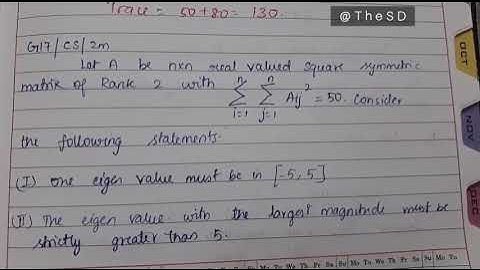 Trace = 50+80 = 130.
@TheSD
G17/CS/2m
Let A be nxn real valued square symmetric
matrix of Rank 2 with n∑i=1 n∑j=1 Aij² = 50. Consider
the following statements.
(I) one eigen value must be in [-5, 5]
(II) The eigen value with the largest magnitude must be
strictly greater than 5.
OCT
NOV
DEC